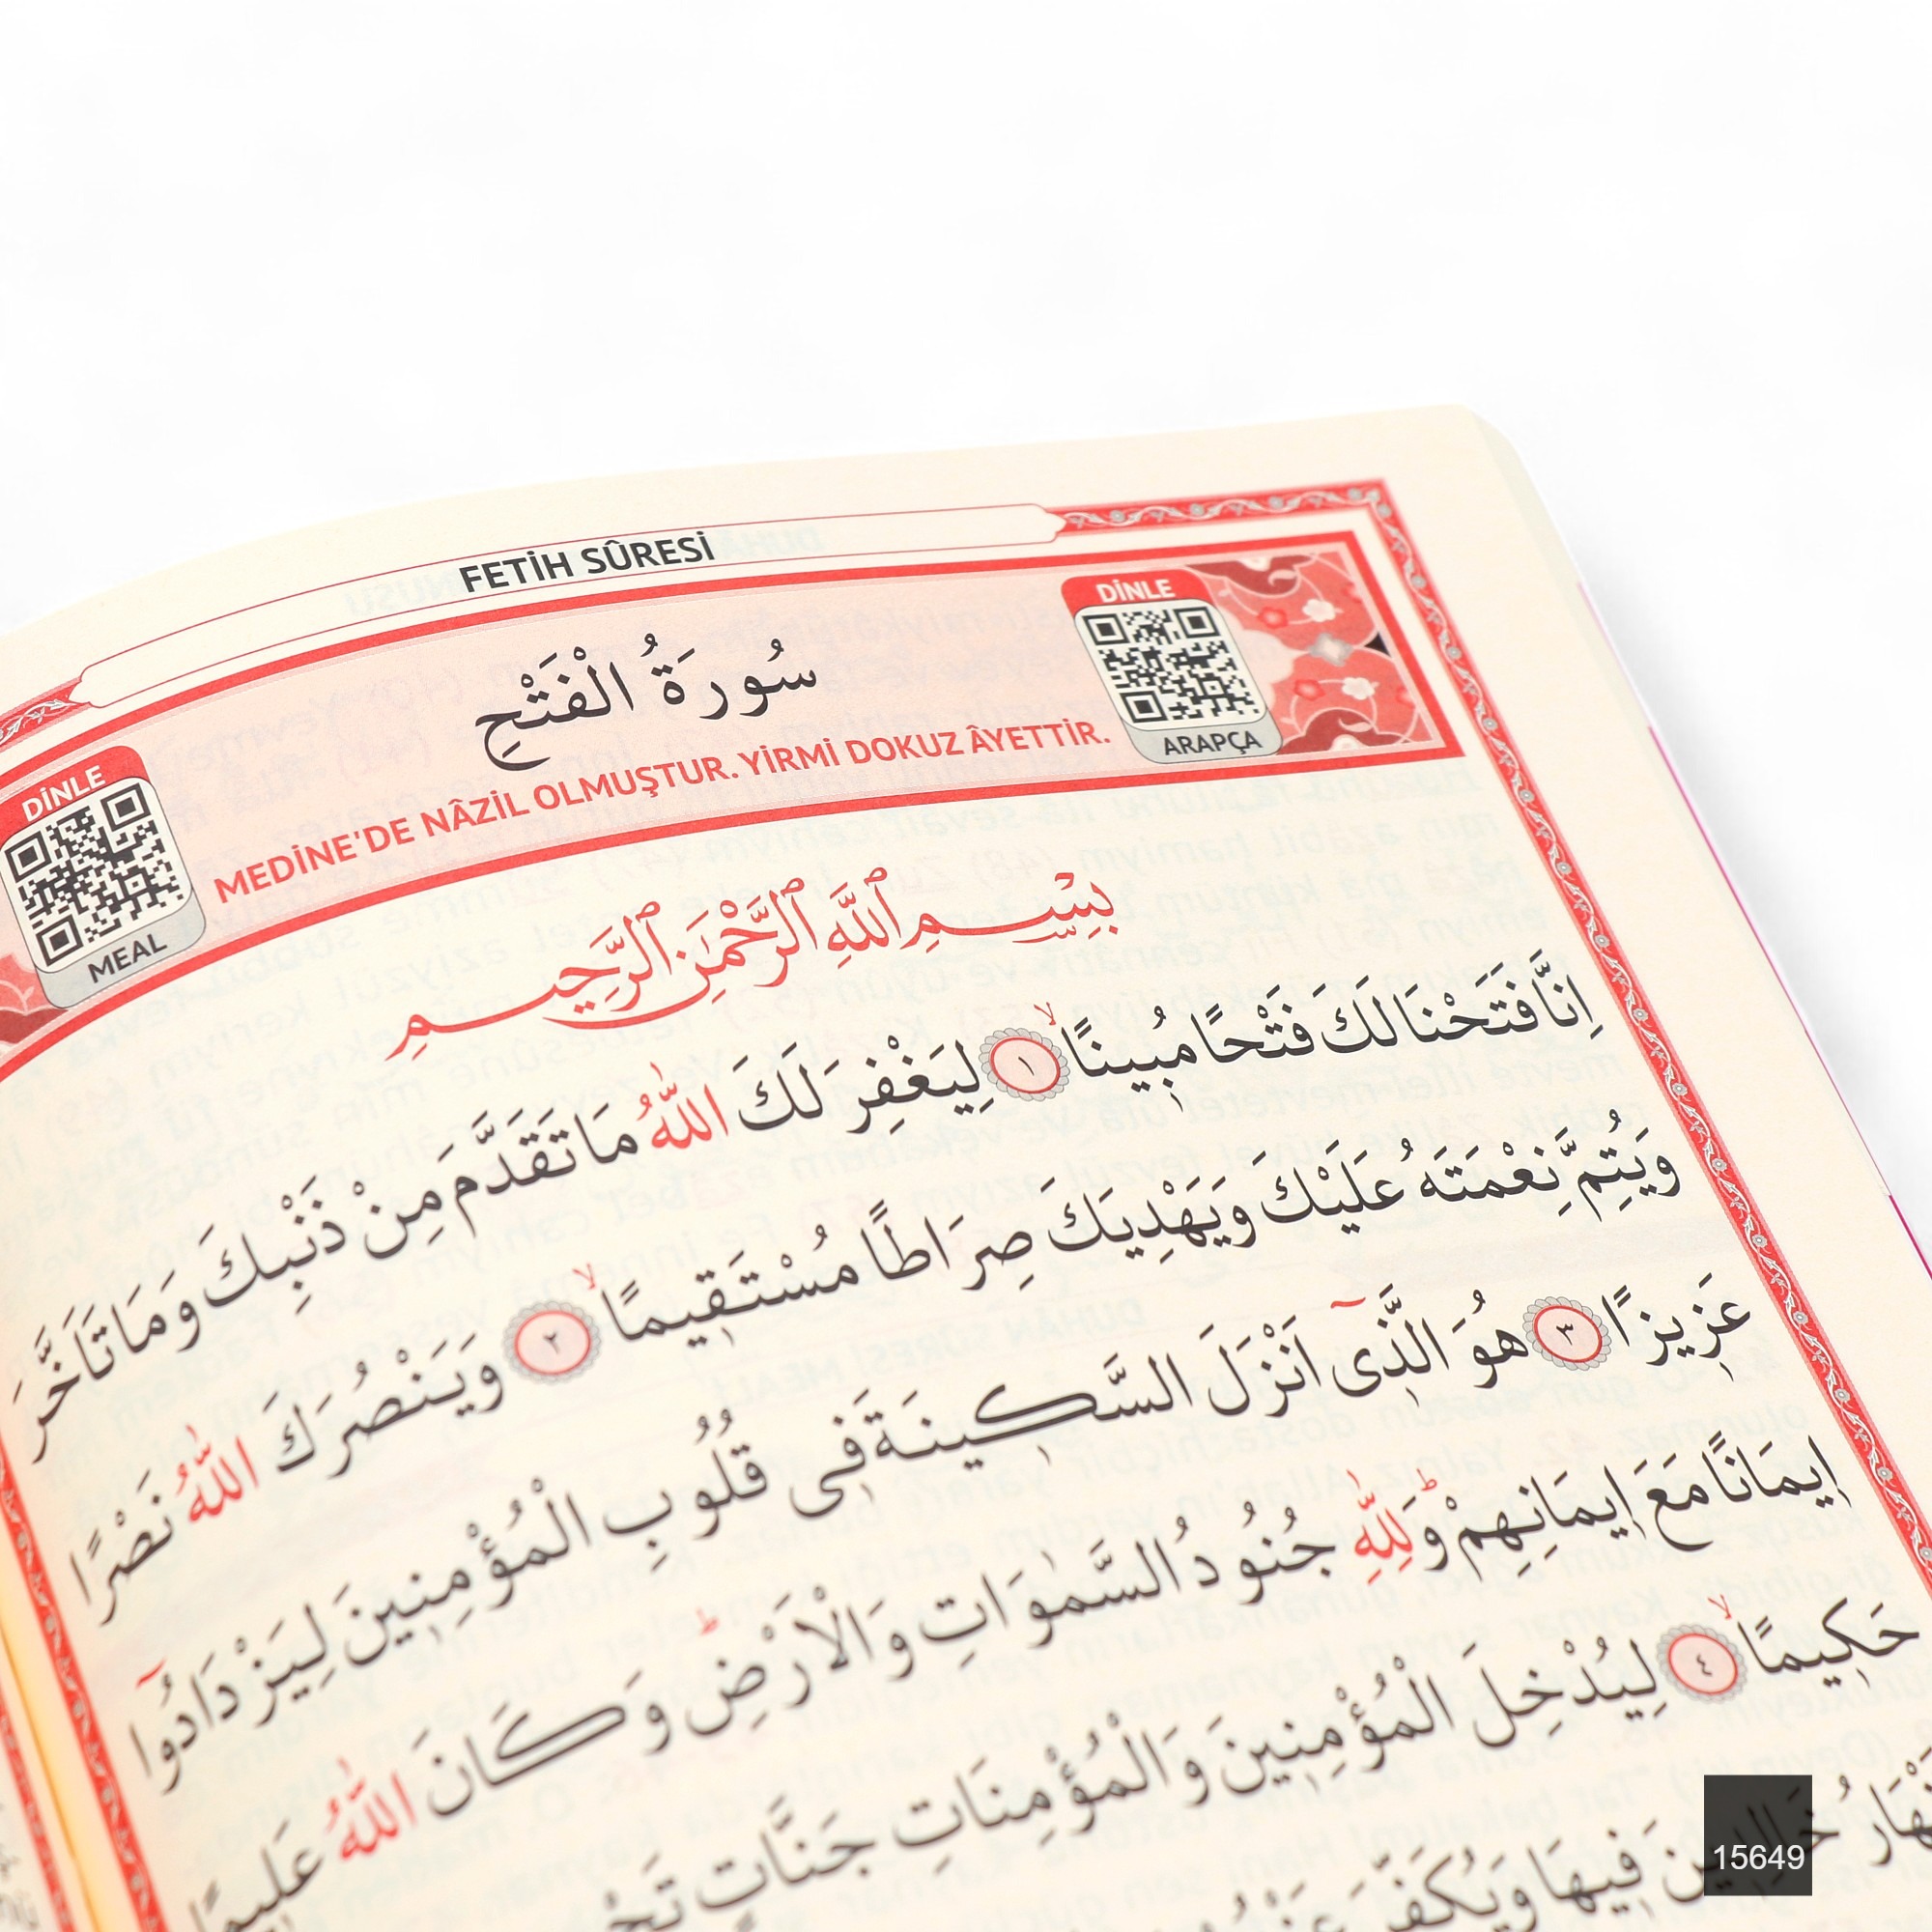 FETİH SÛRESİ
سُورَةُ الْفَتْحِ
DİNLE
ARAPÇA
DİNLE
MEAL
MEDİNE'DE NÂZİL OLMUŞTUR. YİRMİ DOKUZ ÂYETTİR.
بِسْمِ اللّٰهِ الرَّحْمٰنِ الرَّحِيمِ
اِنَّا فَتَحْنَا لَكَ فَتْحًا مُبٖينًاۙ ١ لِيَغْفِرَ لَكَ اللّٰهُ مَا تَقَدَّمَ مِنْ ذَنْبِكَ وَمَا تَاَخَّرَ
وَيُتِمَّ نِعْمَتَهُ عَلَيْكَ وَيَهْدِيَكَ صِرَاطًا مُسْتَقٖيمًاۙ ٢ وَيَنْصُرَكَ اللّٰهُ نَصْرًا
عَزٖيزًا ٣ هُوَ الَّذٖٓى اَنْزَلَ السَّكٖينَةَ فٖى قُلُوبِ الْمُؤْمِنٖينَ لِيَزْدَادُٓوا
اٖيمَانًا مَعَ اٖيمَانِهِمْۜ وَلِلّٰهِ جُنُودُ السَّمٰوَاتِ وَالْاَرْضِۜ وَكَانَ اللّٰهُ عَلٖيمًا
حَكٖيمًاۙ ٤ لِيُدْخِلَ الْمُؤْمِنٖينَ وَالْمُؤْمِنَاتِ جَنَّاتٍ
فٖيهَا وَيُكَفِّرَ
15649